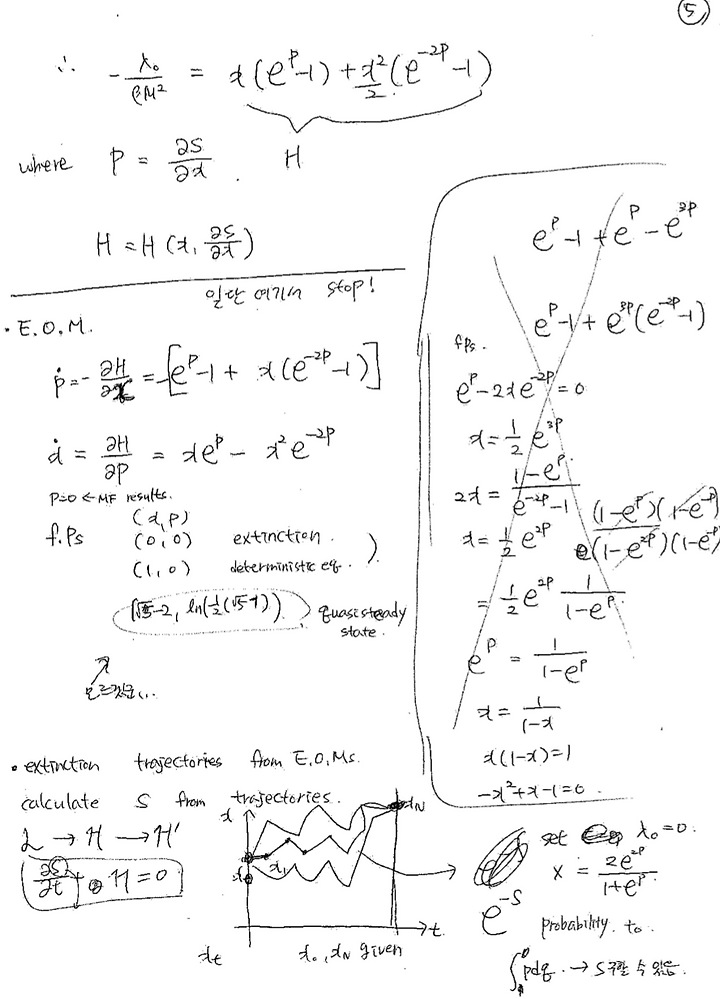 ⑤
∴ -λ₀/(βM²) = x(e^p-1) + x²/2(e^{-2p}-1)
where p = ∂S/∂x . H
H = H(x, ∂S/∂x)
일단 여기서 stop!
· E.O.M.
ṗ = -∂H/∂x = -[e^p-1 + x(e^{-2p}-1)]
ẋ = ∂H/∂p = xe^p - x²e^{-2p}
p=0 ← MF results.
(x,p)
f.Ps (0,0) extinction.
(1,0) deterministic eq.
(√5-2, ln(½(√5-1)) quasisteady
state.
e^p-1+e^p-e^{3p}
e^p-1+e^{3p}(e^{-2p}-1)
fps.
e^p-2xe^{-2p}=0
x=½e^{3p}
2x= (1-e^p)/(e^{-2p}-1)
x=½e^{2p} (1-e^p)(1-e^{-p})/(1-e^{2p})(1-e^{-p})
=½e^{2p} 1/(1-e^p)
e^p = 1/(1-e^p)
x= 1/(1-x)
x(1-x)=1
-x²+x-1=0
• extinction trajectories from E.O.Ms.
calculate S from trajectories.
L → H → H'
∂S/∂t + H=0
x
x_N
x₁
t
x_t x₀, x_N given
set λ₀=0.
x = 2e^{2p}/(1+e^p)
e^{-S} probability to
∫pdq. → S 구할 수 있음